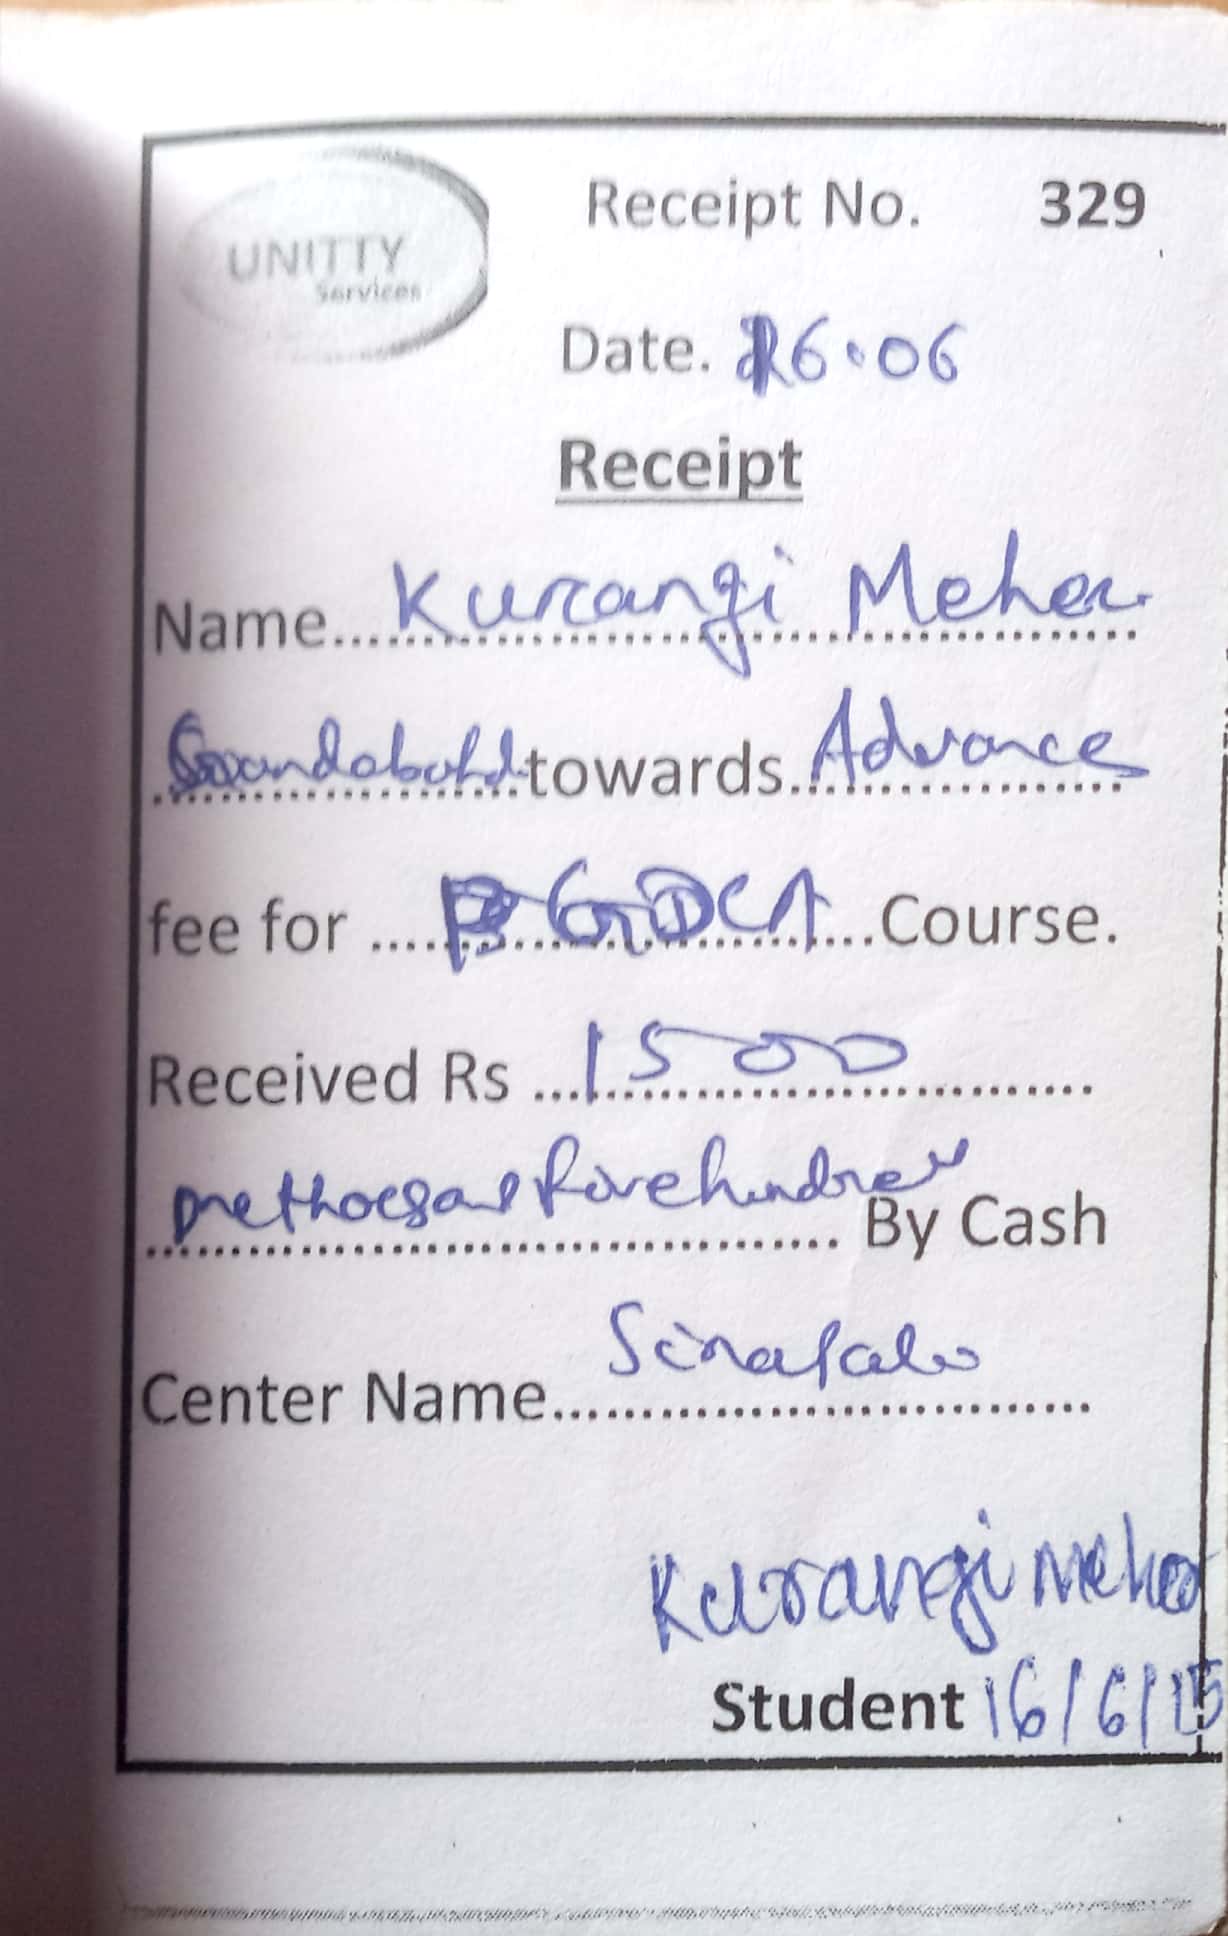 UNITTY
Services
Receipt No. 329
Date. 16.06
Receipt
Name....Kurangi Meher
towards Advance
fee for ....PGDCA....Course.
Received Rs ...1500
By Cash
Center Name....Sinapali
Kurangi Meher
Student 16/6/15